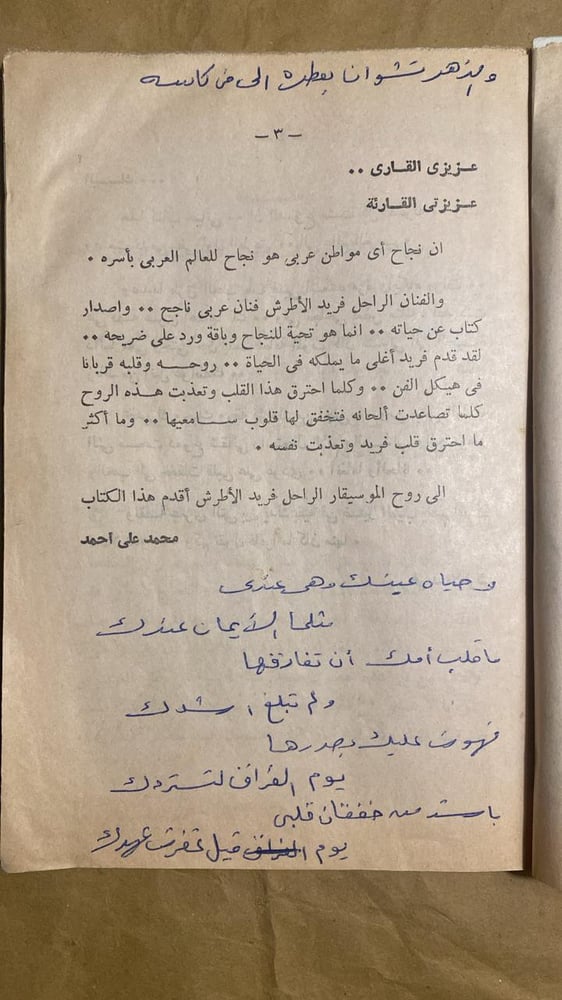 والزهر نشوانا بعطره الى من كاسه
- ٣ -
عـزيزى القـارى ٠٠
عـزيزتى القـارئة
ان نجاح أى مواطن عربى هو نجاح للعالم العربى بأسره ٠
والفنان الراحل فريد الأطرش فنان عربى ناجح ٠٠ واصدار
كتاب عن حياته ٠٠ انما هو تحية للنجاح وباقة ورد على ضريحه ٠٠
لقد قدم فريد أغلى ما يملكه فى الحياة ٠٠ روحـــه وقلبه قربانا
فى هيكل الفن ٠٠ وكلما احترق هذا القلب وتعذبت هـذه الروح
كلما تصاعدت ألحانه فتخفق لها قلوب سـامعيها ٠٠ وما أكثر
ما احترق قلب فريد وتعذبت نفسه ٠
الى روح الموسيقار الراحل فريد الأطرش أقدم هذا الكتاب
محمد على أحمد
وحياه عينك وهى عندى
مثلما الأيمان عندك
ما قلب أمك أن تفارقها
ولم تبلغ أشدك
فهوت عليك بصدرها
يوم الفراق لتستردك
بأشد من خفقان قلبى
يوم الفراق قيل خفرت عهدك